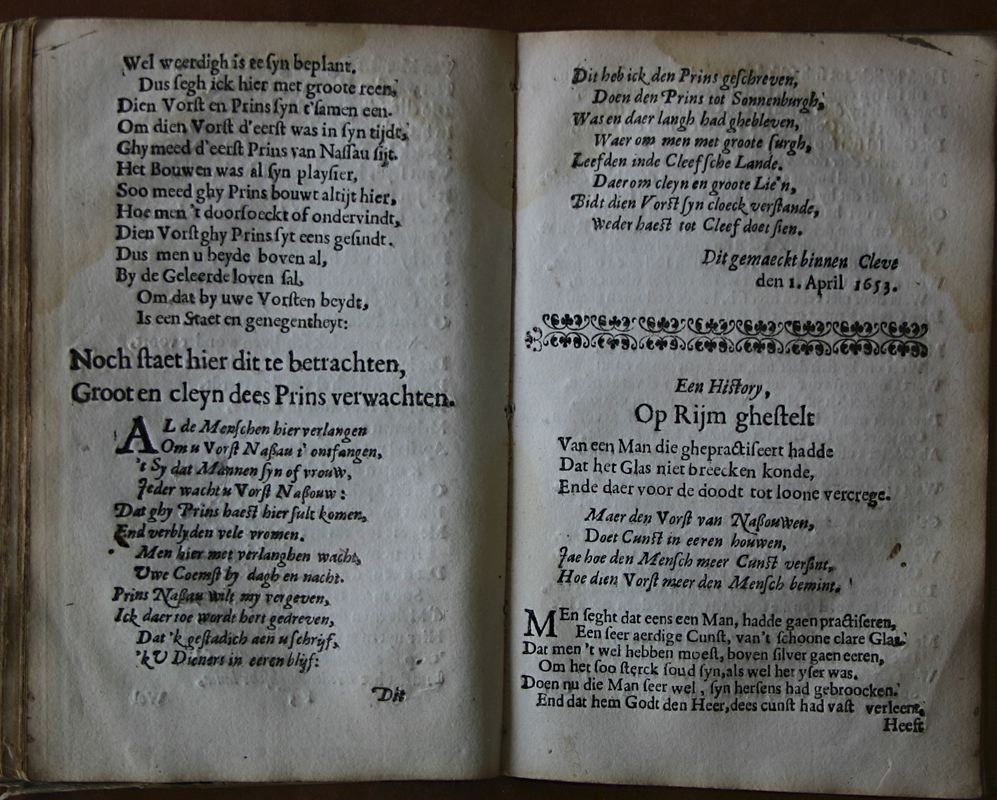 Wel weerdigh is te syn beplant.
Dus segh ick hier met groote reen,
Dien Vorst en Prins syn t'samen een.
Om dien Vorst d'eerst was in syn tijdt,
Ghy meed d'eerst Prins van Nassau sijt.
Het Bouwen was al syn playsier,
Soo meed ghy Prins bouwt altijt hier,
Hoe men 't doorsoeckt of ondervindt,
Dien Vorst ghy Prins syt eens gesindt.
Dus men u beyde boven al,
By de Geleerde loven sal,
Om dat by uwe Vorsten beydt,
Is een Staet en genegentheyt:
Noch staet hier dit te betrachten,
Groot en cleyn dees Prins verwachten.
AL de Menschen hier verlangen
Om u Vorst Naßau t' ontfangen,
't Sy dat Mannen syn of vrouw,
Jeder wacht u Vorst Naßouw:
Dat ghy Prins haest hier sult komen,
End verblyden vele vromen.
Men hier met verlanghen wacht,
Uwe Coemst by dagh en nacht.
Prins Naßau wilt my vergeven,
Ick daer toe wordt hert gedreven,
Dat 'k gestadich aen u schrijf,
'k U Dieners in eeren blijf:
Dit
Dit heb ick den Prins geschreven,
Doen den Prins tot Sonnenburgh,
Was en daer langh had ghebleven,
Waer om men met groote surgh,
Leefden inde Cleefsche Lande.
Daerom cleyn en groote Lie'n,
Bidt dien Vorst syn cloeck verstande,
Weder haest tot Cleef doet sien.
Dit gemaeckt binnen Cleve
den 1. April 1653.
Een History,
Op Rijm ghestelt
Van een Man die ghepractiseert hadde
Dat het Glas niet breecken konde,
Ende daer voor de doodt tot loone vercrege.
Maer den Vorst van Naßouwen,
Doet Cunst in eeren houwen,
Jae hoe den Mensch meer Cunst versint,
Hoe dien Vorst meer den Mensch bemint.
MEn seght dat eens een Man, hadde gaen practiseren,
Een seer aerdige Cunst, van't schoone clare Glas:
Dat men 't wel hebben moest, boven silver gaen eeren,
Om het soo sterck soud syn, als wel het yser was.
Doen nu die Man seer wel, syn hersens had gebroocken.
End dat hem Godt den Heer, dees cunst had vast verleent,
Heeft